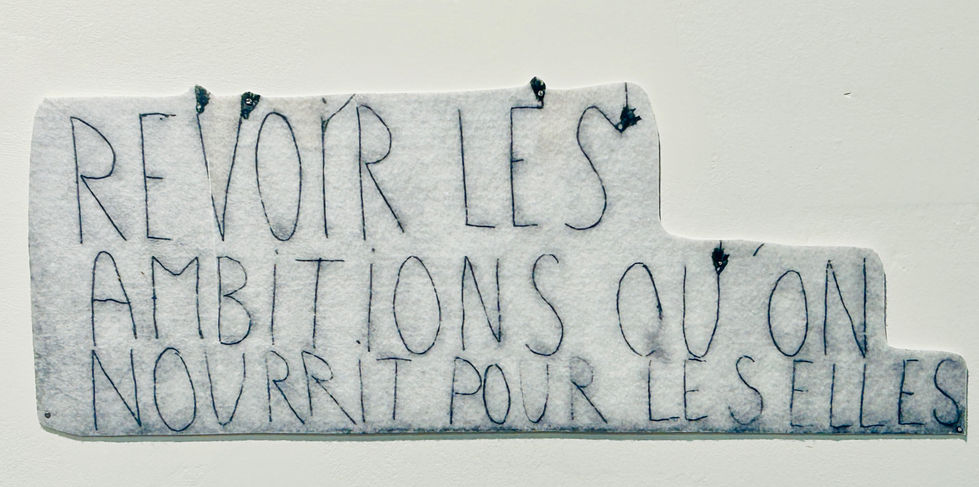 REVOIR LES
AMBITIONS QU'ON
NOURRIT POUR LES ELLES